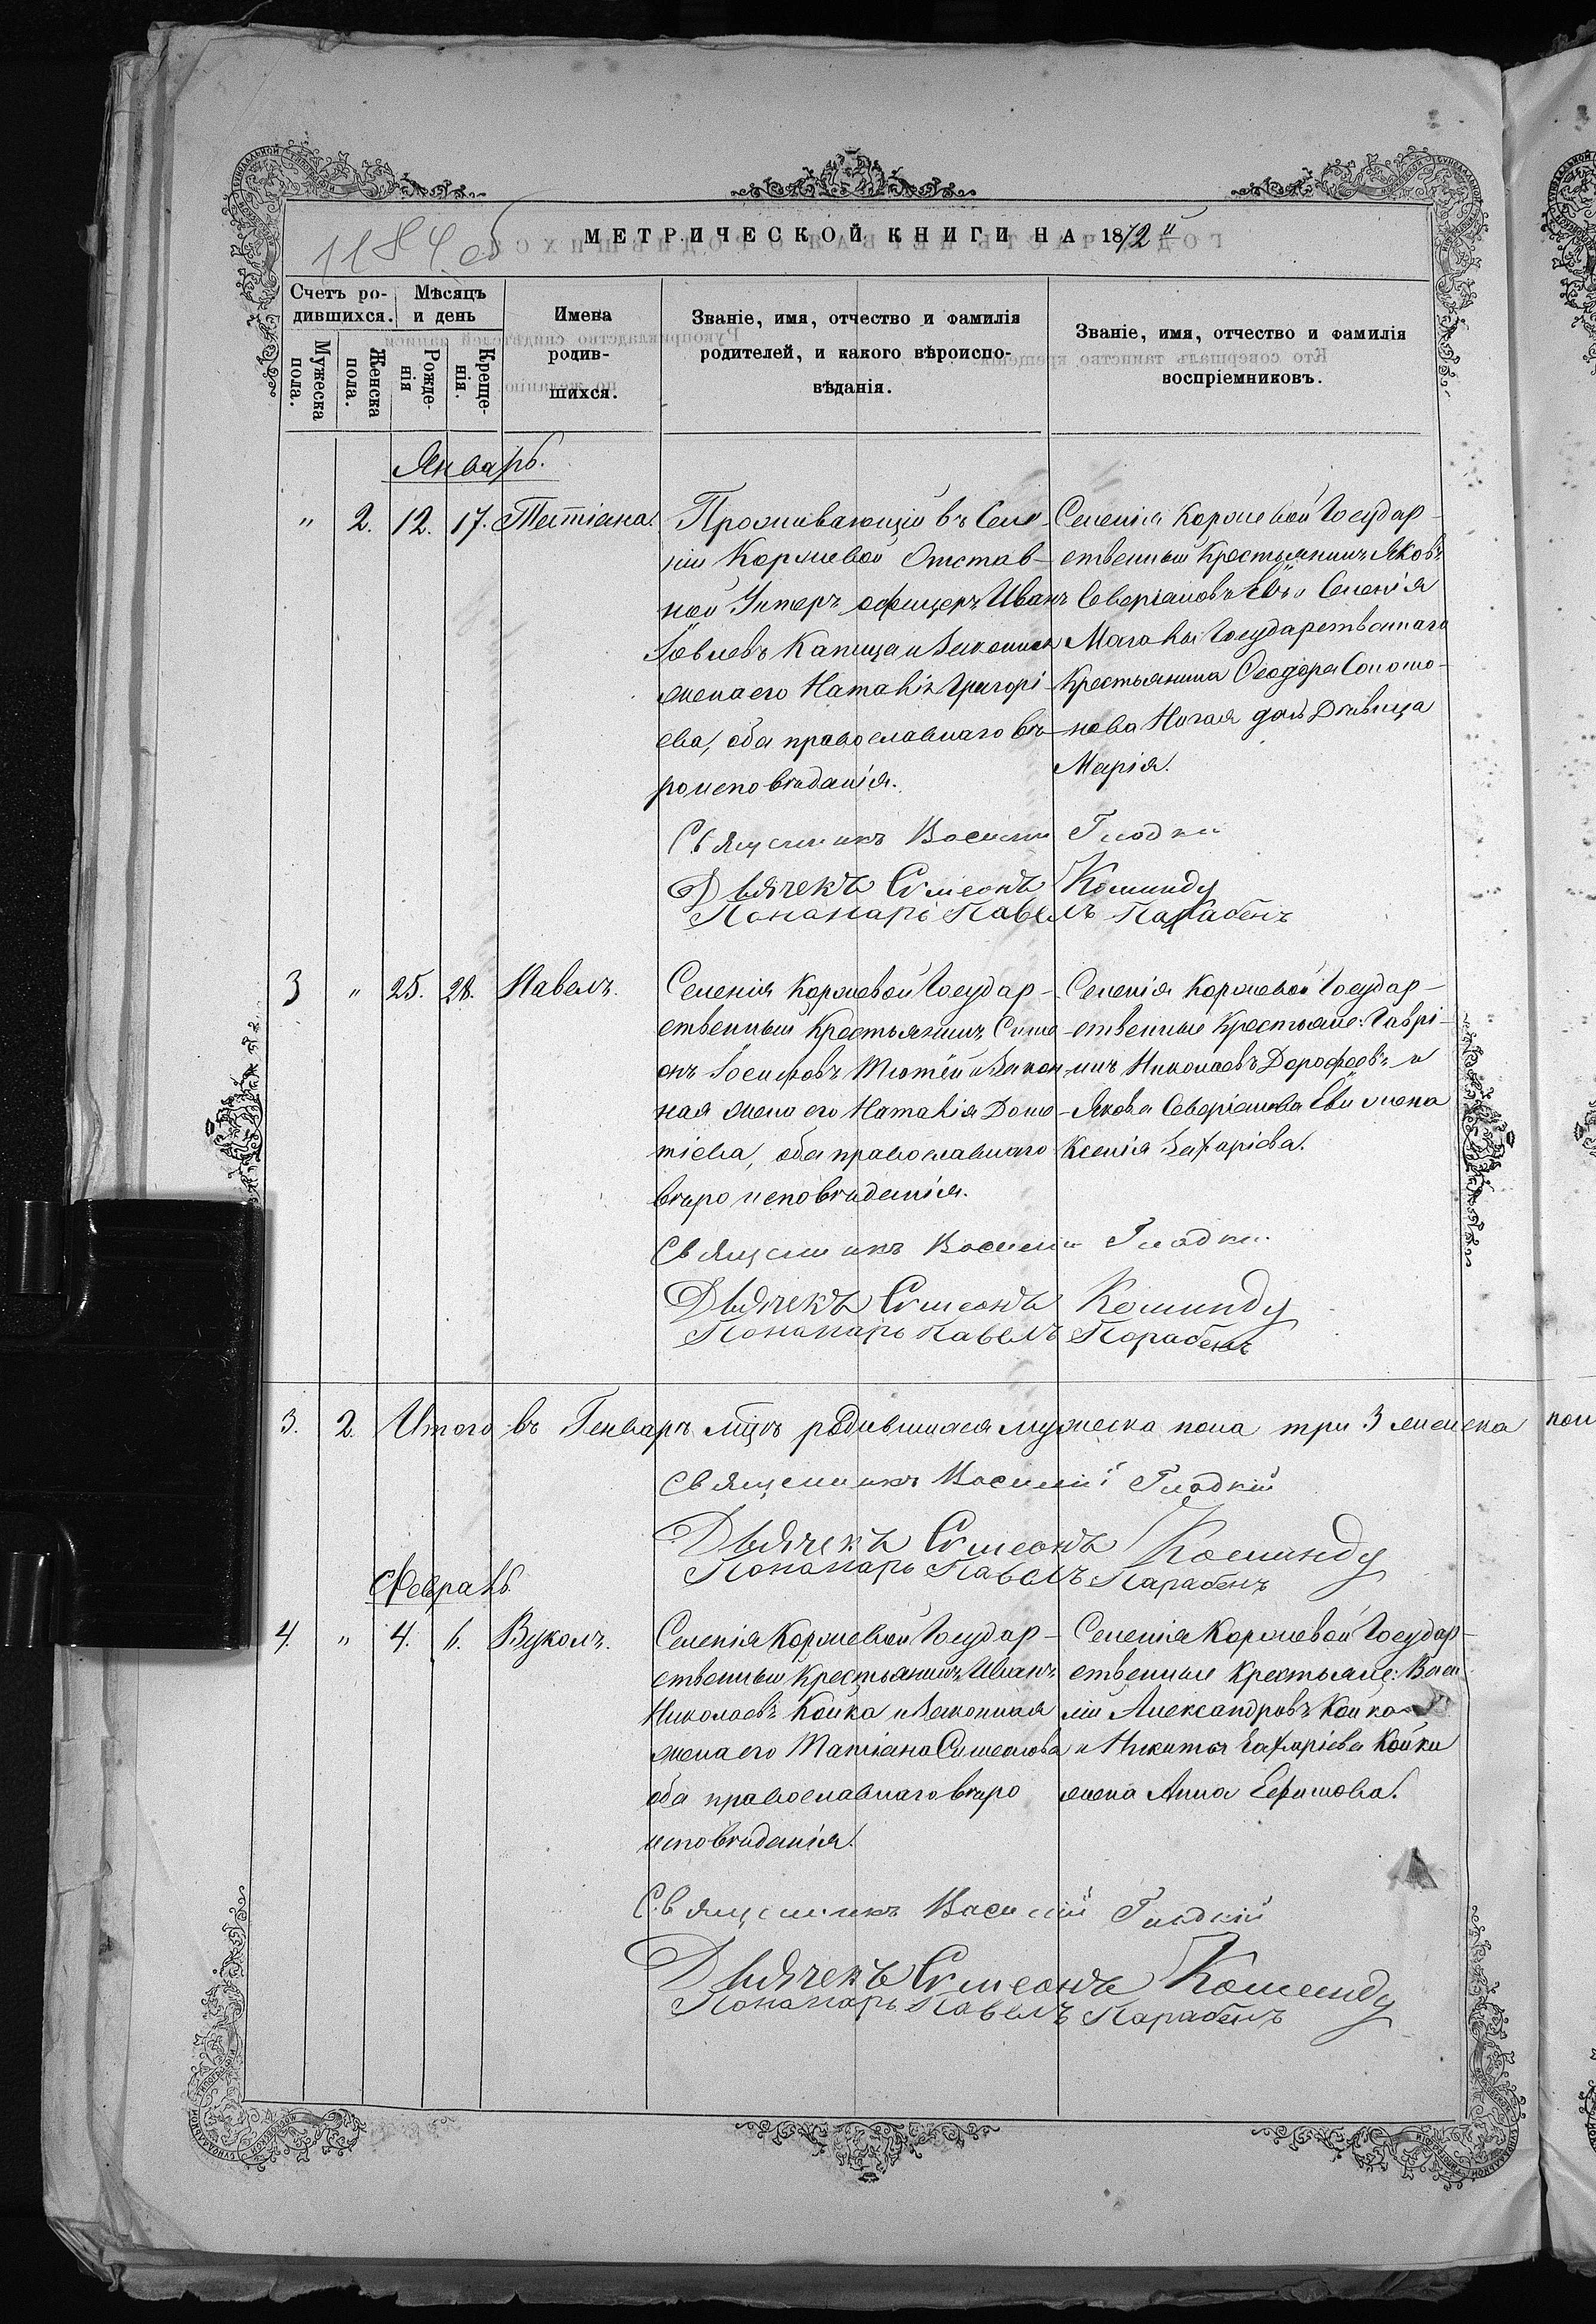 1184 об
МЕТРИЧЕСКОЙ КНИГИ НА 1872й
Счетъ ро-
дившихся.
Мѣсяцъ
и день
Мужеска
пола.
Женска
пола.
Рожде-
нія
Креще-
нія.
Имена
родив-
шихся.
Званіе, имя, отчество и фамилія
родителей, и какого вѣроиспо-
вѣданія.
Званіе, имя, отчество и фамилія
воспріемниковъ.
Январь.
" 2. 12. 17. Татіана.
Проживающій въ Селе-
ніи Коржевой Отстав-
ной Унтеръ офицеръ Иванъ
Іовлевъ Капица и Законная
жена его Наталія Григорі-
ева, оба православнаго вѣ-
роисповѣданія.
Селенія Коржевой Государ-
ственный Крестьянинъ Яковъ
Северіановъ и Селенія
Государственнаго
Крестьянина Ѳеодора Соломо-
нова дочь Дѣвица
Марія.
Священникъ Василій Гладкій
Дьячекъ Симеонъ Команду
Пономарь Павелъ Парабенъ
3 " 25. 28. Павелъ.
Селенія Коржевой Государ-
ственный Крестьянинъ Симе-
онъ Іосифовъ и Закон-
ная жена его Наталія Доме-
тіева, оба православнаго
вѣроисповѣданія.
Селенія Коржевой Государ-
ственные Крестьяне: Гаврі-
илъ Николаевъ Дорофеевъ и
Якова Северіанова жена
Ксенія Захаріева.
Священникъ Василій Гладкій
Дьячекъ Симеонъ Команду
Пономарь Павелъ Парабенъ
3. 2. Итого въ Генварѣ мцѣ родившихся мужеска пола три 3 женска пол
Священникъ Василій Гладкій
Дьячекъ Симеонъ Команду
Пономарь Павелъ Парабенъ
Февраль
4. " 4. 6. Вуколъ.
Селенія Коржевой Государ-
ственный Крестьянинъ Иванъ
Николаевъ Койка и Законная
жена его Татіана Симеонова
оба православнаго вѣро
исповѣданія.
Селенія Коржевой Государ-
ственные Крестьяне: Васи
лій Александровъ Койка
и Никиты Захаріева Койки
жена Анна Ефимова.
Священникъ Василій Гладкій
Дьячекъ Симеонъ Команду
Пономарь Павелъ Парабенъ